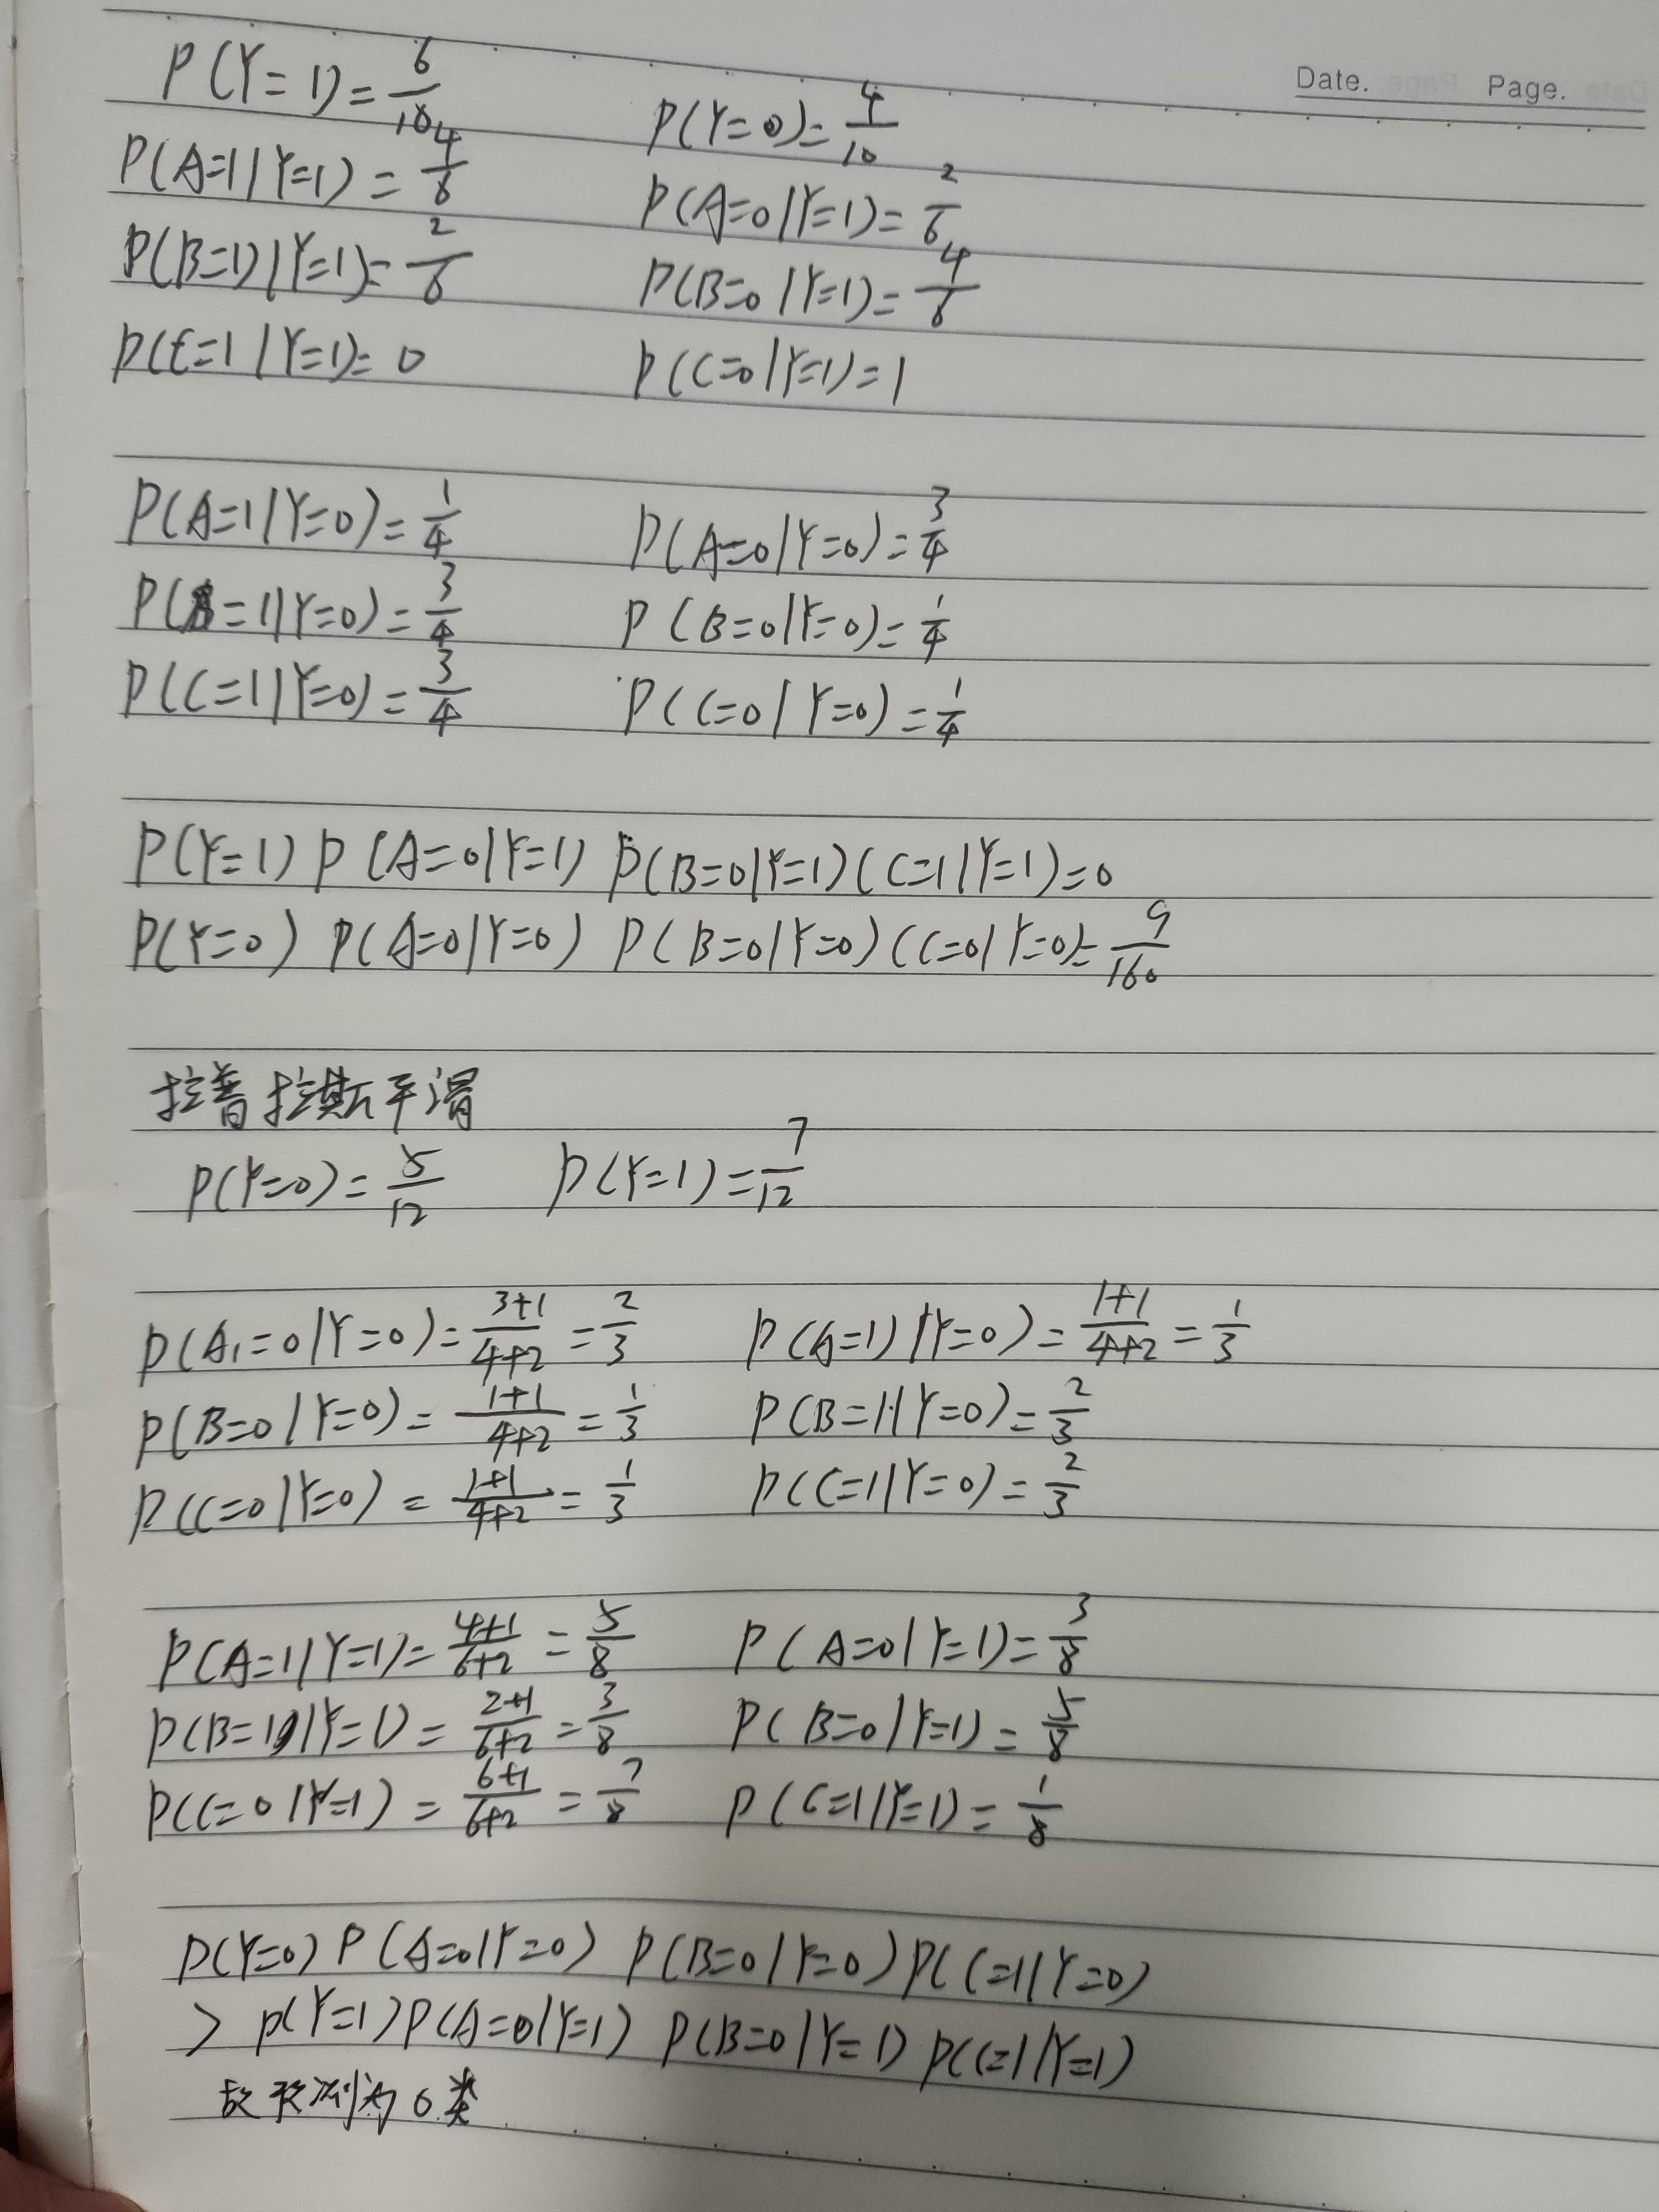 Date. Page.
P(Y=1)=6/10 P(Y=0)=4/10
P(A=1|Y=1)=4/6 P(A=0|Y=1)=2/6
P(B=1)|Y=1)=2/6 P(B=0|Y=1)=4/6
P(C=1|Y=1)=0 P(C=0|Y=1)=1
P(A=1|Y=0)=1/4 P(A=0|Y=0)=3/4
P(B=1|Y=0)=3/4 P(B=0|Y=0)=1/4
P(C=1|Y=0)=3/4 P(C=0|Y=0)=1/4
P(Y=1) P(A=0|Y=1) P(B=0|Y=1)(C=1|Y=1)=0
P(Y=0) P(A=0|Y=0) P(B=0|Y=0)(C=0|Y=0)=9/160
拉普拉斯平滑
P(Y=0)=5/12 P(Y=1)=7/12
P(A₁=0|Y=0)=3+1/4+2=2/3 P(A=1)|Y=0)=1+1/4+2=1/3
P(B=0|Y=0)=1+1/4+2=1/3 P(B=1|Y=0)=2/3
P(C=0|Y=0)=1+1/4+2=1/3 P(C=1|Y=0)=2/3
P(A=1|Y=1)=4+1/6+2=5/8 P(A=0|Y=1)=3/8
P(B=1|Y=1)=2+1/6+2=3/8 P(B=0|Y=1)=5/8
P(C=0|Y=1)=6+1/6+2=7/8 P(C=1|Y=1)=1/8
P(Y=0) P(A=0|Y=0) P(B=0|Y=0) P(C=1|Y=0)
> P(Y=1) P(A=0|Y=1) P(B=0|Y=1) P(C=1|Y=1)
故预测为0类